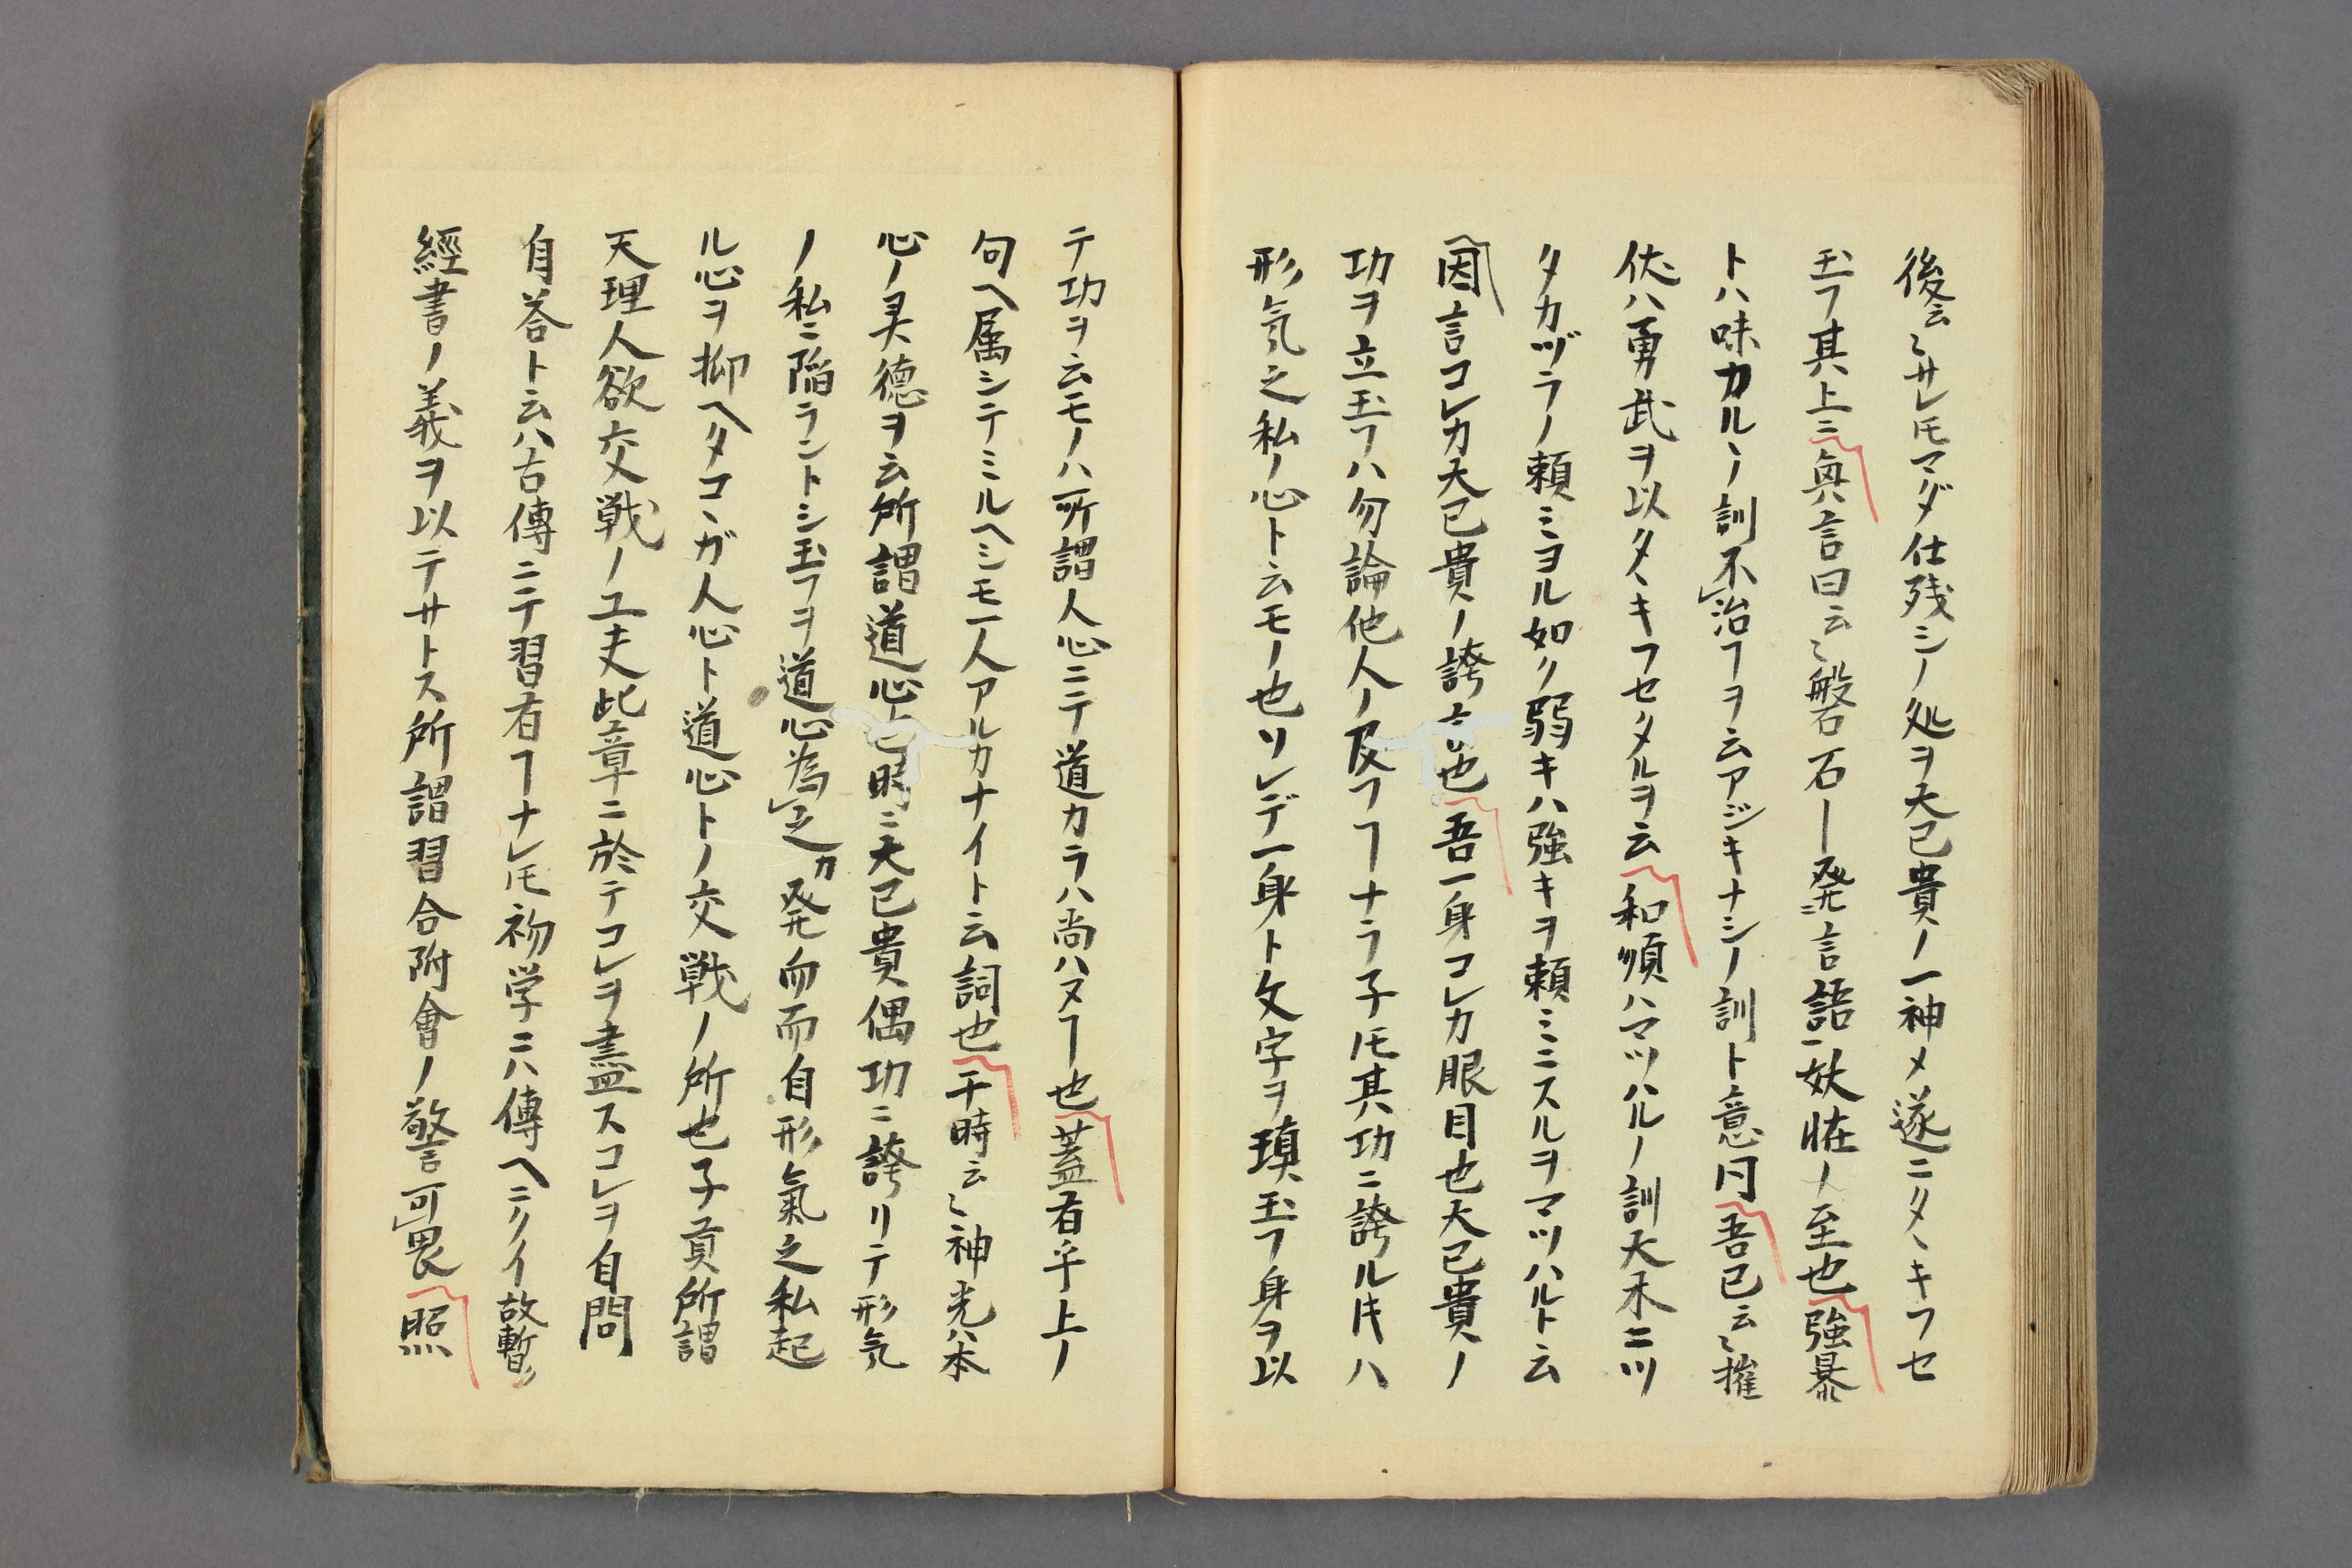 後云〻サレ𪜈マダ仕残シノ処ヲ大己貴ノ一神メ遂ニタヽキフセ
玉フ其上ニ興言曰云〻磐石ー発言語妖恠ノ至也強暴
トハ味カルヽノ訓不治ヿヲ云アジキナシノ訓ト意同吾已云〻摧
伏ハ勇武ヲ以タヽキフセタルヲ云和順ハマツハルノ訓大木ニツ
タカヅラノ頼ミヨル如ク弱キハ強キヲ頼ミニスルヲマツハルト云
因言コレカ大己貴ノ誇言也吾一身コレカ眼目也大己貴ノ
功ヲ立玉フハ勿論他人ノ及フヿナラ子𪜈其功ニ誇ル𪜈ハ
形気之私ノ心ト云モノ也ソレデ一身ト文字ヲ瑱玉フ身ヲ以
テ功ヲ云モノハ所謂人心ニテ道カラハ尚ハヌヿ也蓋有乎上ノ
句ヘ属シテミルヘシモ一人アルカナイト云詞也干時云〻神光ハ本
心ノ灵徳ヲ云所謂道心也此時ニ大己貴偶功ニ誇リテ形気
ノ私ニ陥ラントシ玉フヲ道心為之カ発而而自形氣之私起
ル心ヲ抑ヘタコヽガ人心ト道心トノ交戦ノ所也子貢所謂
天理人欲交戦ノ工夫此章ニ於テコレヲ盡スコレヲ自問
自荅ト云ハ古傳ニテ習有ヿナレ𪜈初学ニハ傳ヘニクイ故暫ク
經書ノ義ヲ以テサトス所謂習合附會ノ警可畏照